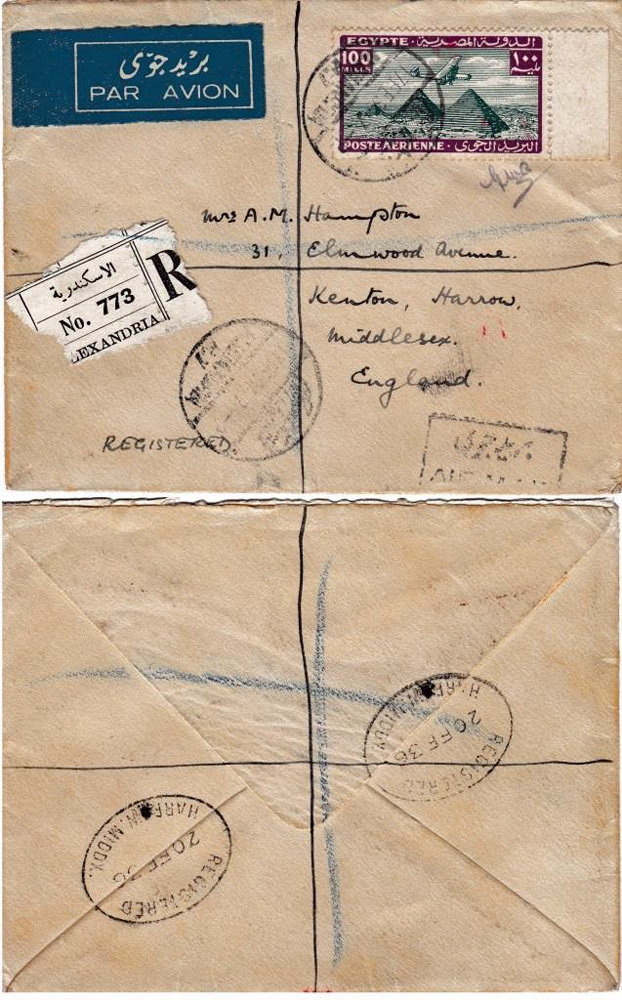 بريد جوى
PAR AVION
EGYPTE
الدولة المصرية
100
MILLS
١٠٠
مليم
POSTE AERIENNE
البريد الجوى
Mrs A.M. Hampton
31, Elmwood Avenue.
Kenton, Harrow,
Middlesex.
England.
الاسكندرية
R
No. 773
LEXANDRIA
REGISTERED.
بريد جوى
AIR
REGISTERED
20 FE 36
HARROW. MIDDX.
REGISTERED
20 FE 36
HARROW. MIDDX.